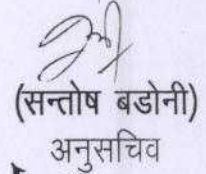 (सन्तोष बडोनी)
अनुसचिव